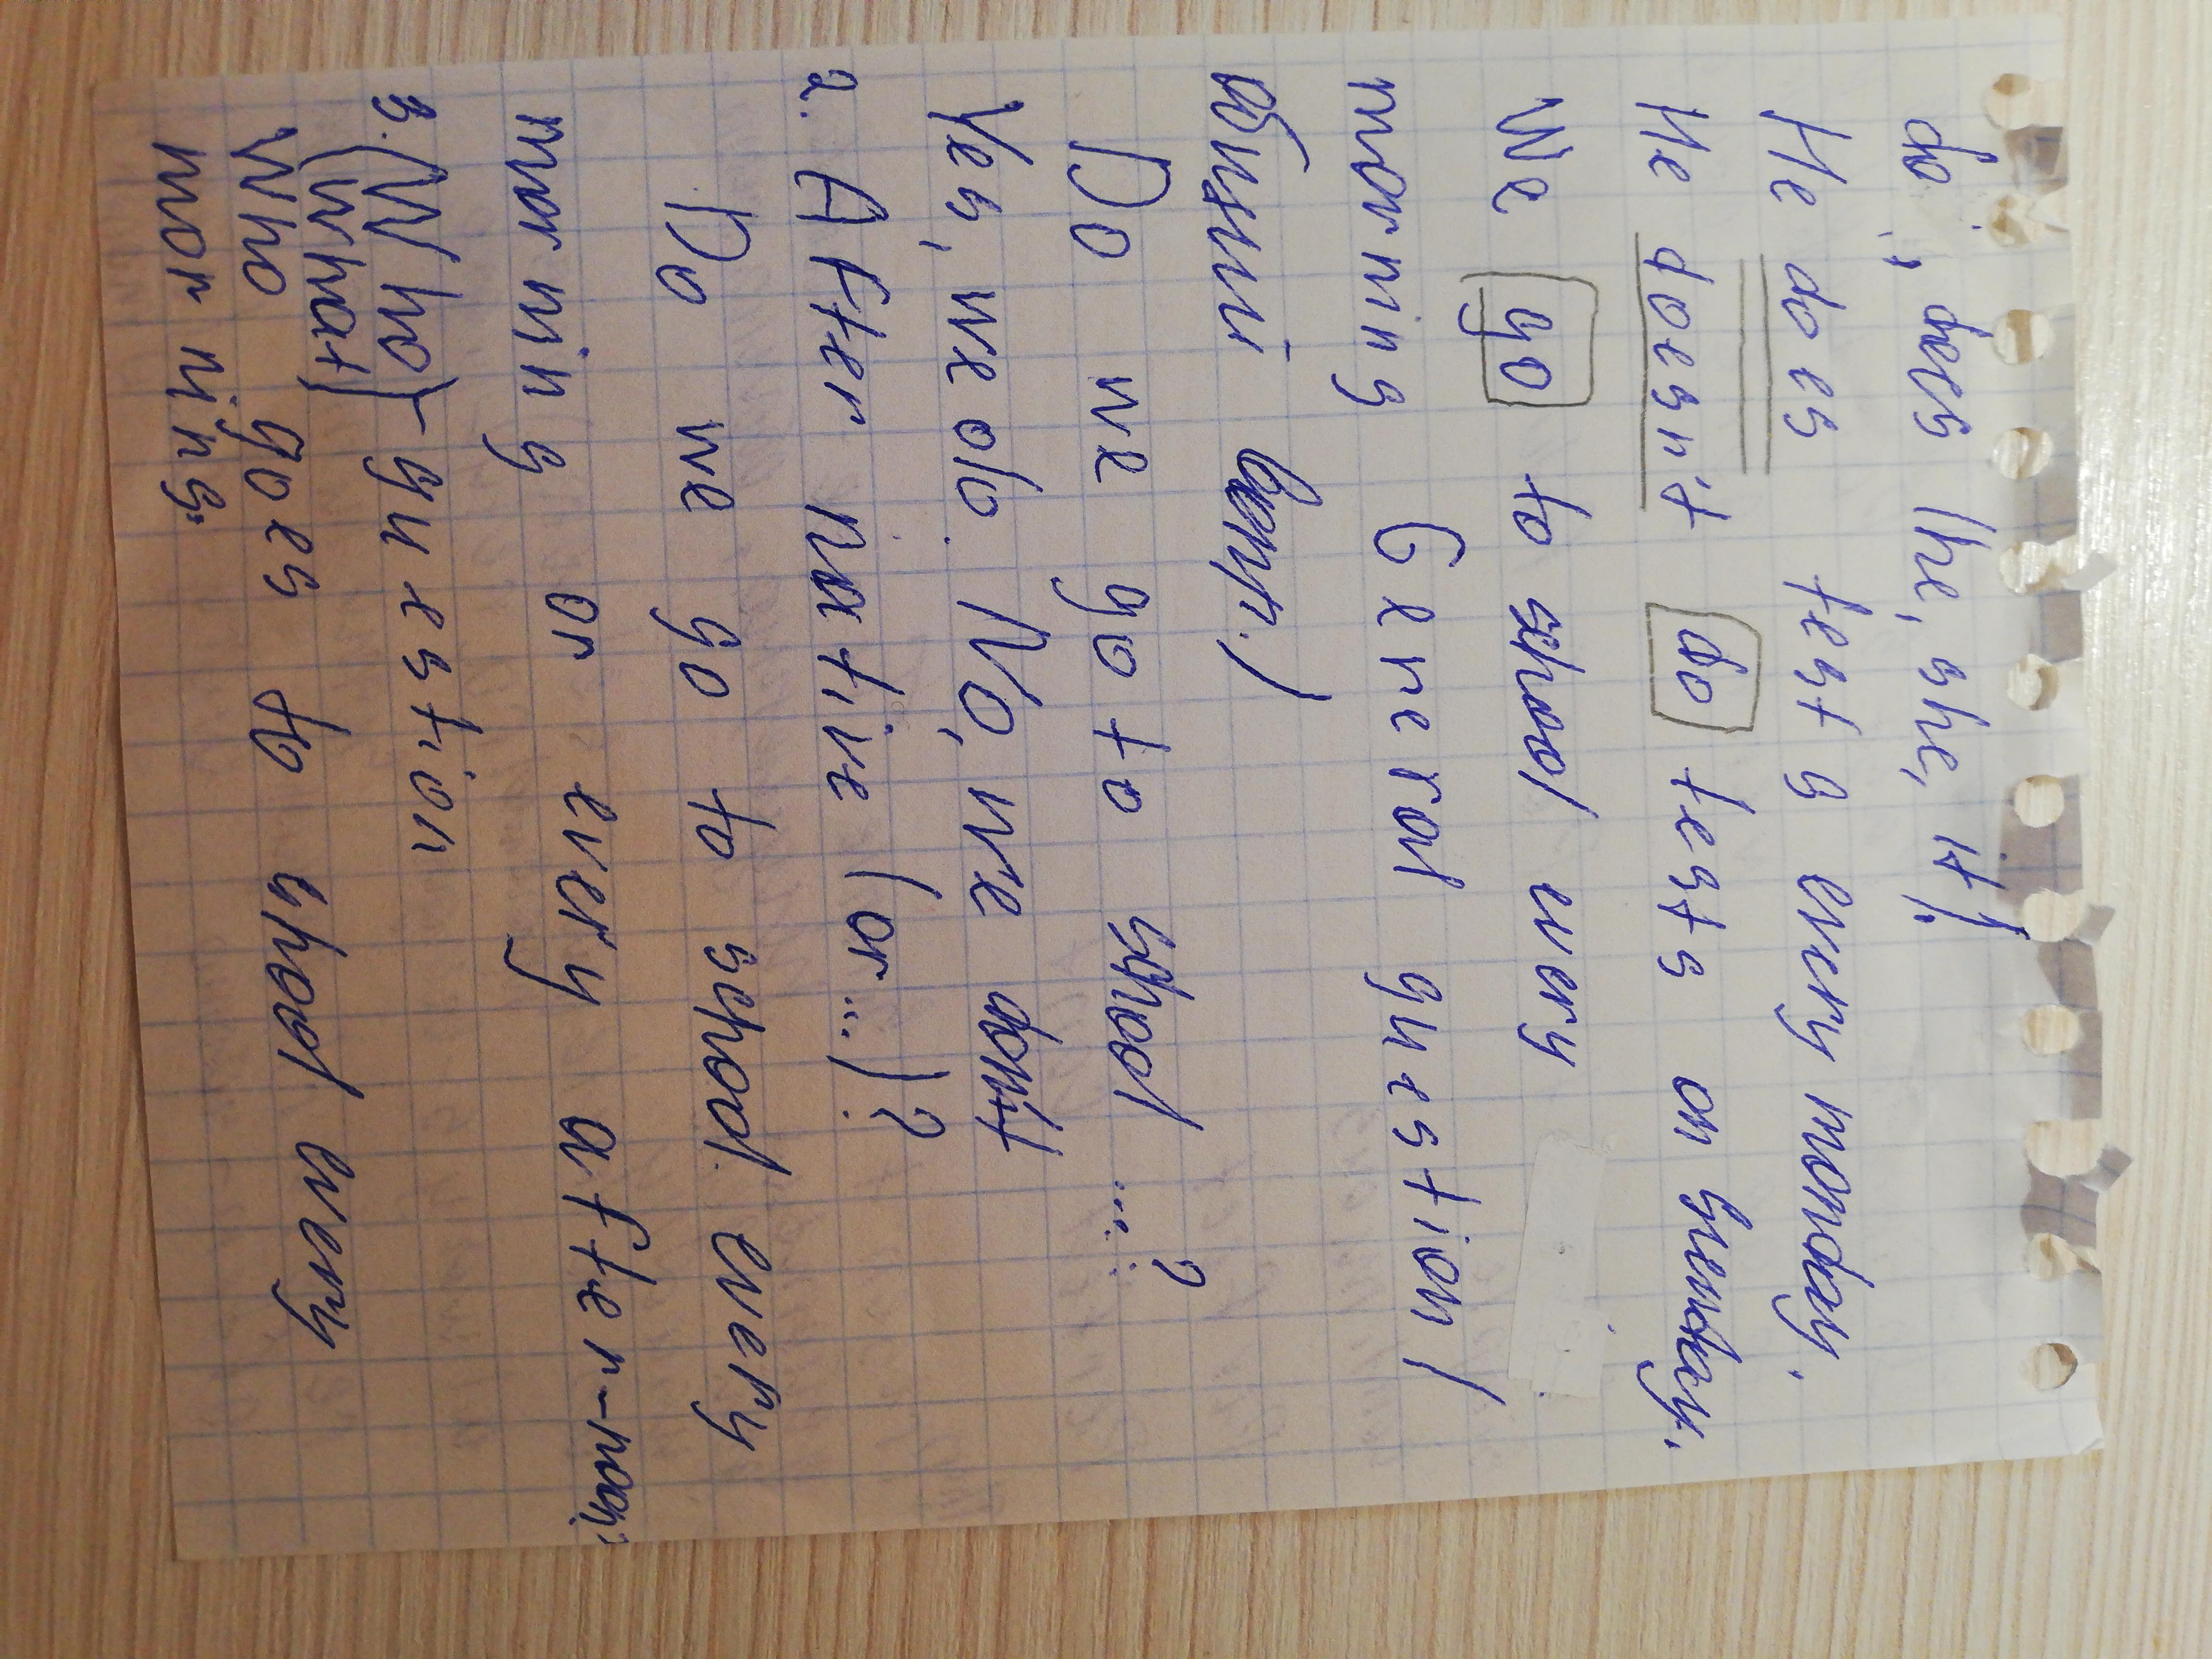 do, does (he, she, it).
He does tests every monday.
He doesn't do tests on
We go to school every
morning General question (
общий вопр.)
Do we go to school ...?
Yes, we do. No, we don't
2. Alter native (or...)?
Do we go to school every
morning or every after-noon.
3. (Who) - question
(what)
Who goes to shool every
morning